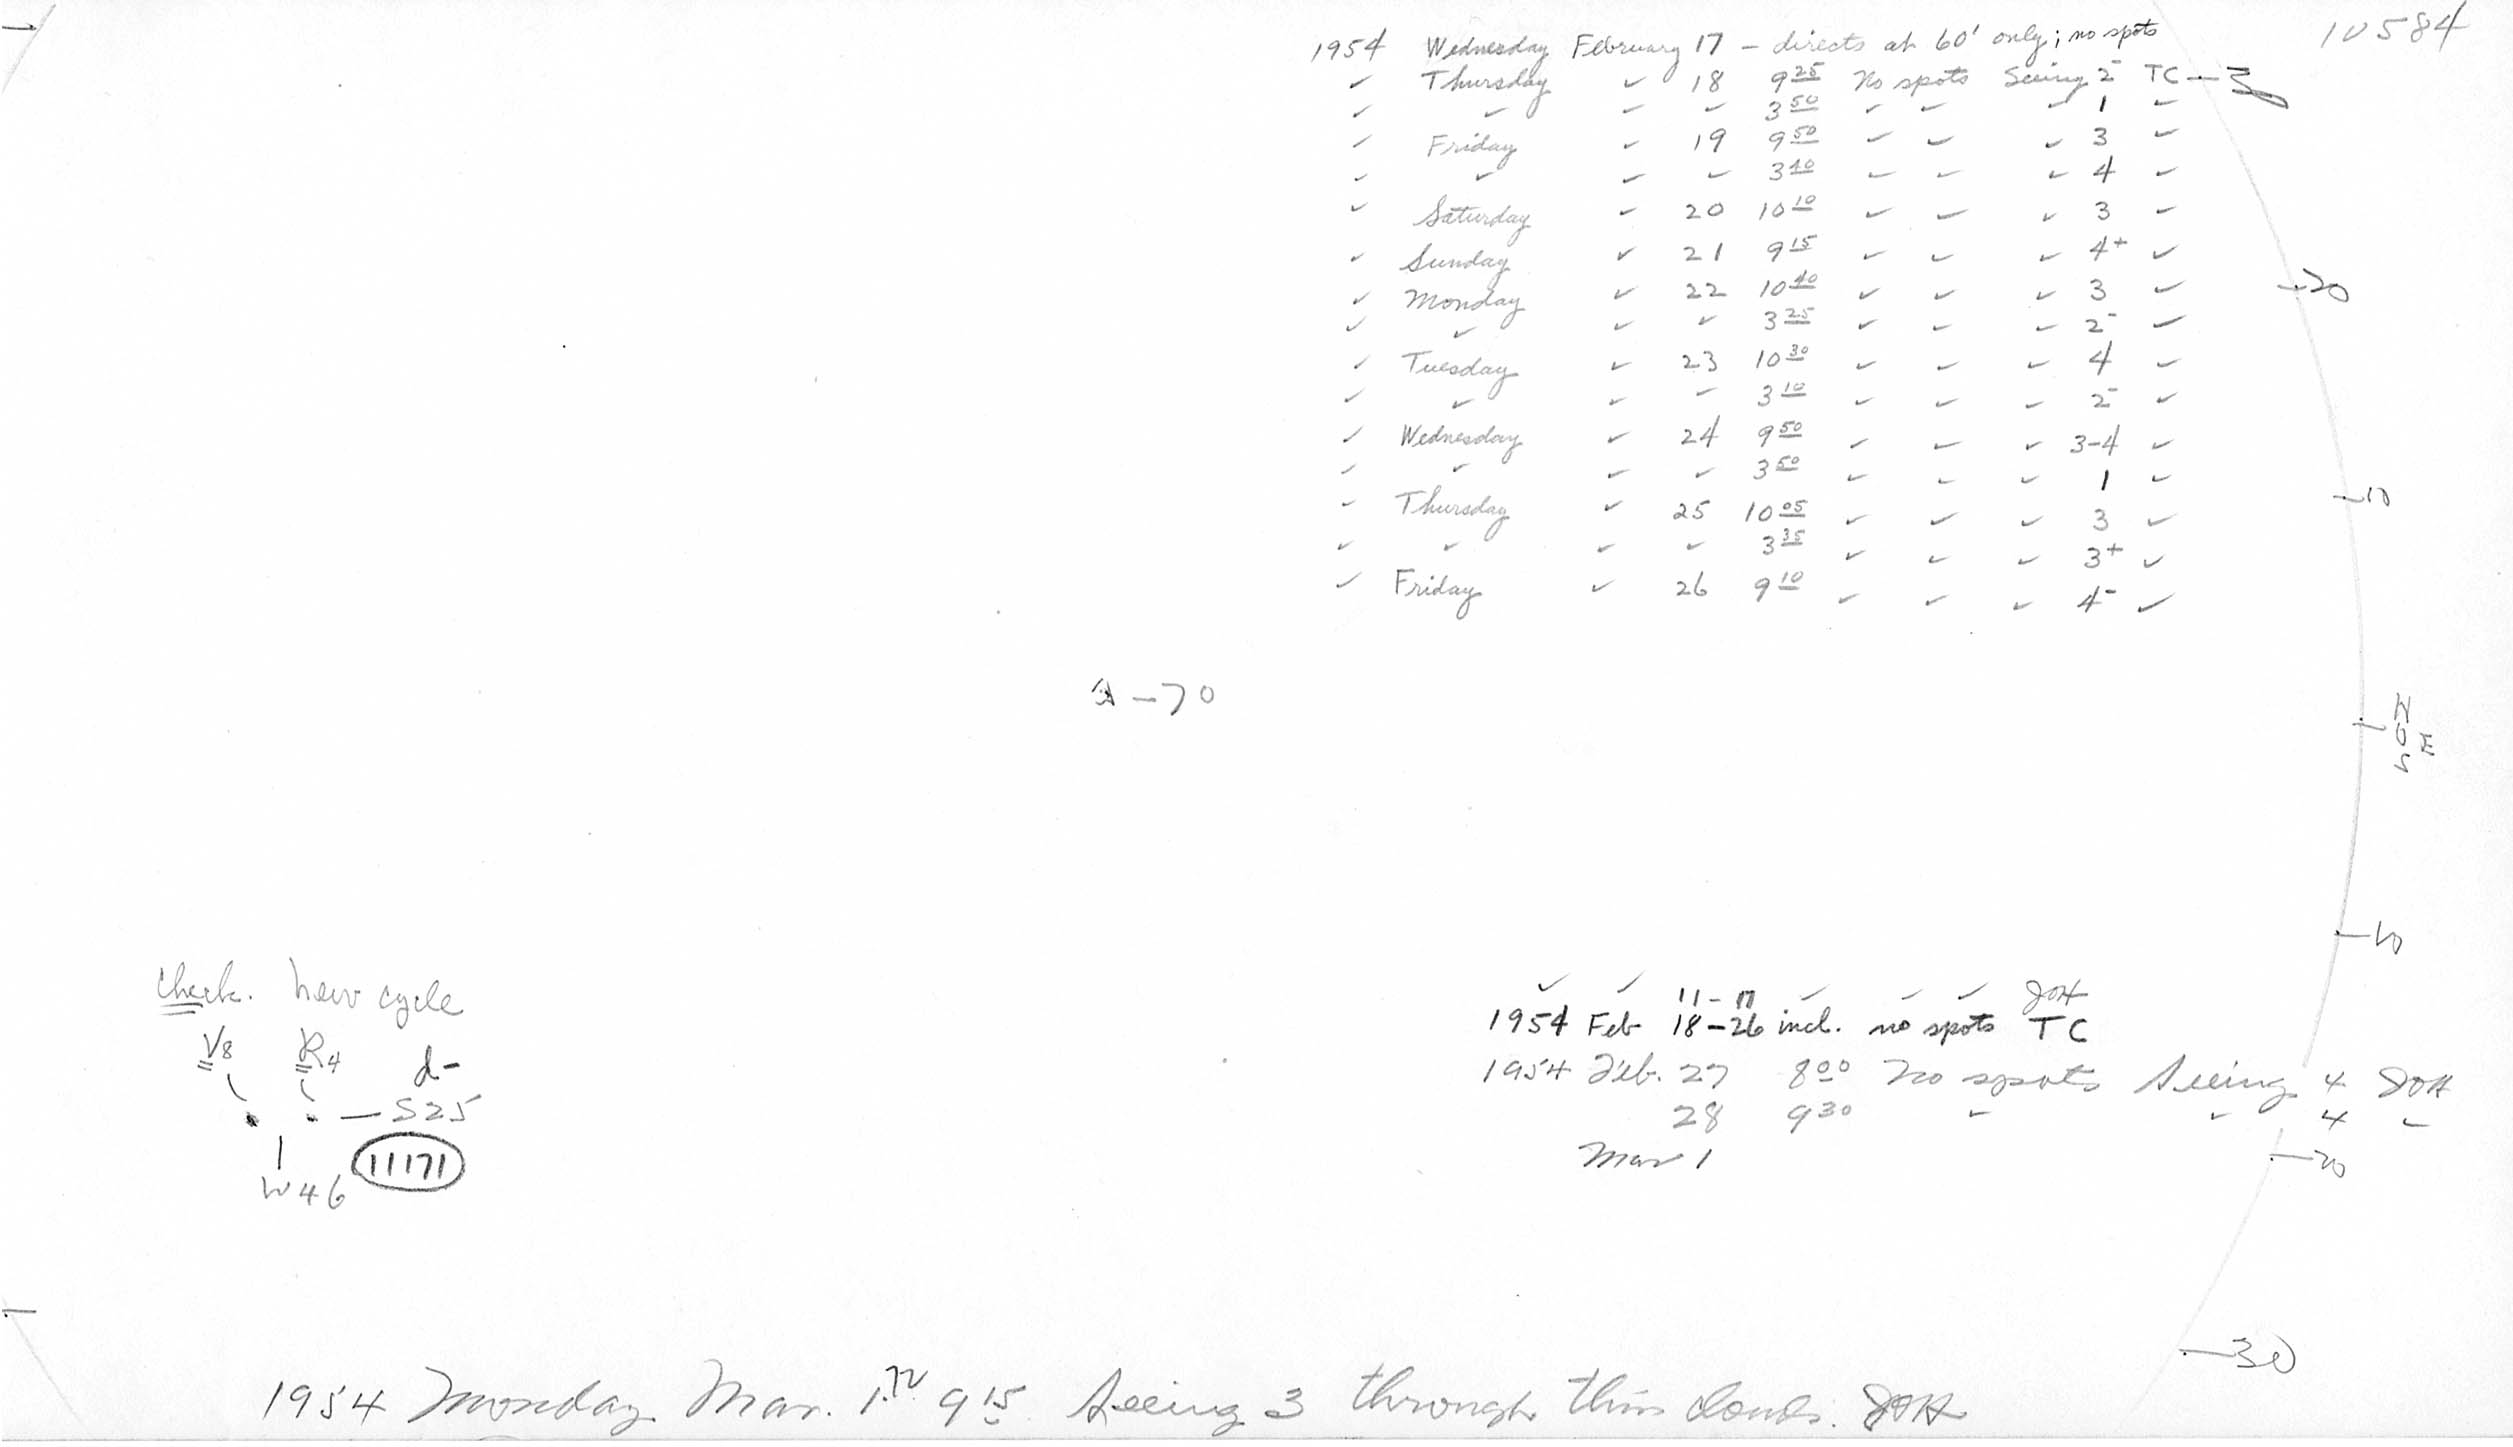 10584
1954 Wednesday February 17 – directs at 60' only; no spots
✓ Thursday ✓ 18 9 25 No spots Seeing 2- TC
✓ ✓ ✓ ✓ 3 50 ✓ ✓ ✓ 1 ✓
✓ Friday ✓ 19 9 50 ✓ ✓ ✓ 3 ✓
✓ ✓ ✓ ✓ 3 40 ✓ ✓ ✓ 4 ✓
✓ Saturday ✓ 20 10 10 ✓ ✓ ✓ 3 ✓
✓ Sunday ✓ 21 9 15 ✓ ✓ ✓ 4+ ✓
✓ Monday ✓ 22 10 40 ✓ ✓ ✓ 3 ✓
✓ ✓ ✓ ✓ 3 25 ✓ ✓ ✓ 2- ✓
✓ Tuesday ✓ 23 10 30 ✓ ✓ ✓ 4 ✓
✓ ✓ ✓ ✓ 3 10 ✓ ✓ ✓ 2- ✓
✓ Wednesday ✓ 24 9 50 ✓ ✓ ✓ 3-4 ✓
✓ ✓ ✓ ✓ 3 50 ✓ ✓ ✓ 1 ✓
✓ Thursday ✓ 25 10 05 ✓ ✓ ✓ 3 ✓
✓ ✓ ✓ ✓ 3 35 ✓ ✓ ✓ 3+ ✓
✓ Friday ✓ 26 9 10 ✓ ✓ ✓ 4- ✓
20
10
–70
N
0 E
S
10
20
30
Check. New cycle
V8 R4 d-
S25
W46 11171
✓ ✓ 11-17 ✓ ✓ ✓ JOH
1954 Feb 18-26 incl. no spots TC
1954 Feb. 27 8 00 No spots Seeing 4 JOH
28 9 30 ✓ ✓ 4 ✓
Mar 1
1954 Monday Mar. 1. 9 15 Seeing 3 through thin clouds. JOH